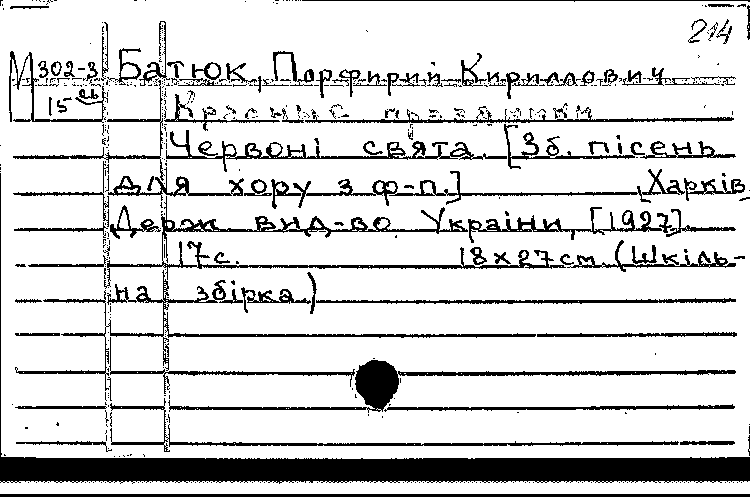 214
М 302-3 Батюк, Порфирий Кириллович.
15 Красные праздники
Червоні свята. [Зб. пісень
для хору з ф-п.] Харків,
Держ. вид-во України, [1927].
17 с. 18х27 см. (Шкіль-
на збірка.)